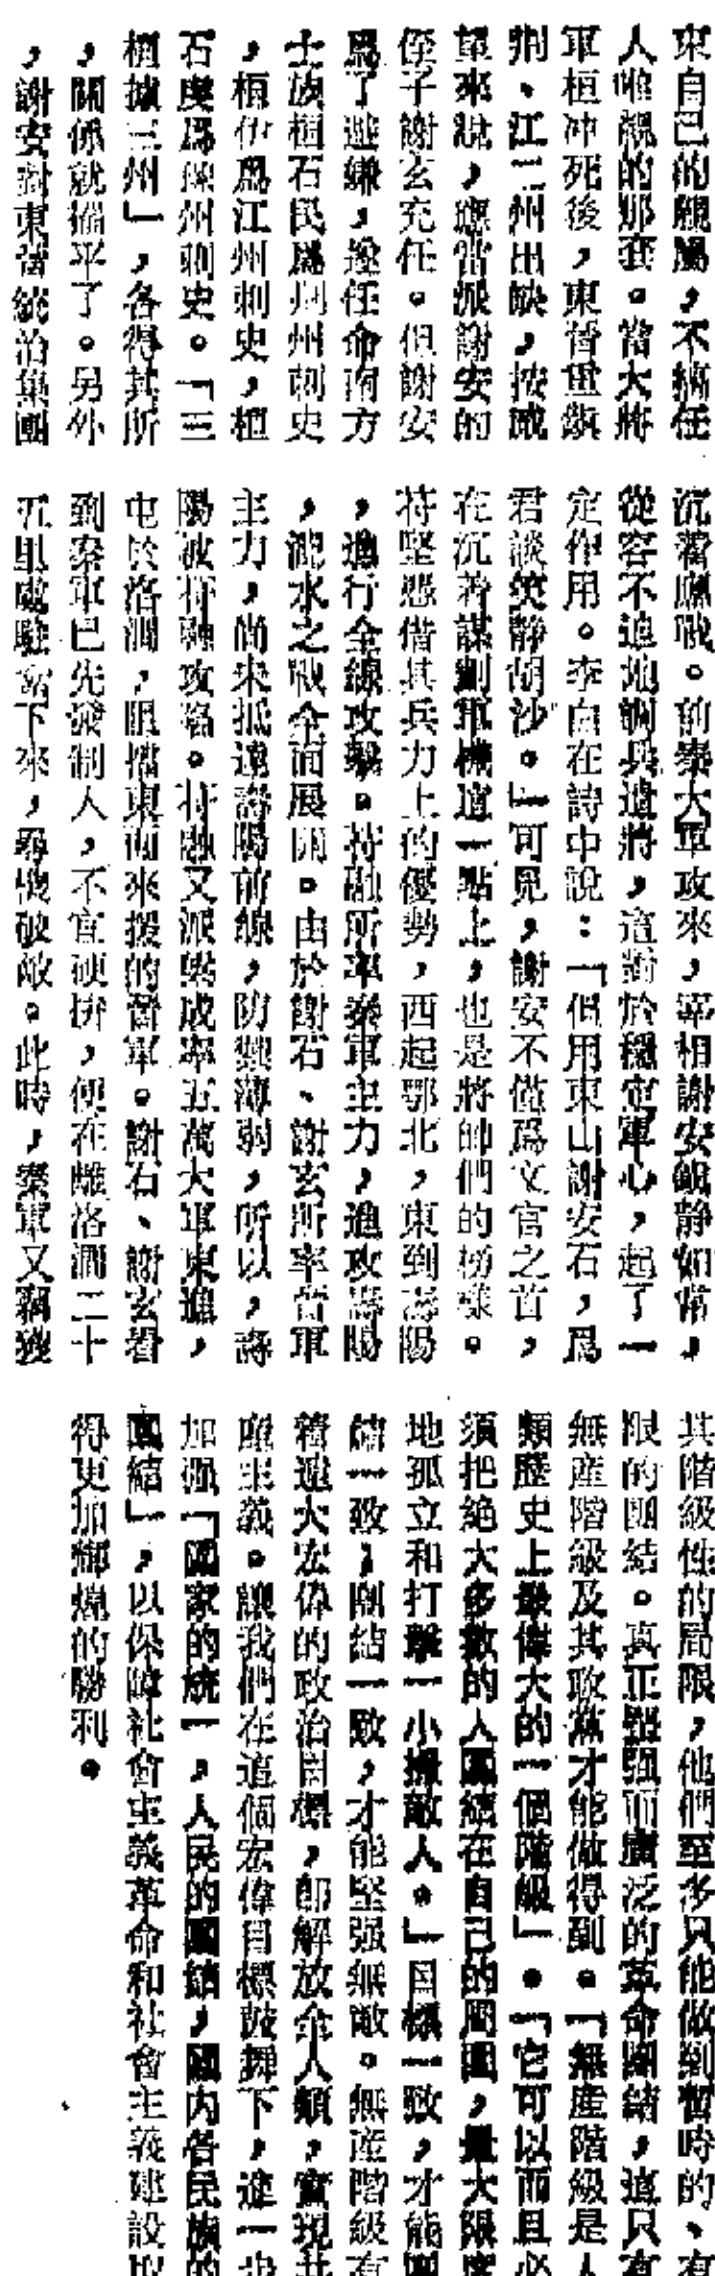 東自己的親屬，不搞任
人唯親的那套。當大將
軍桓冲死後，東晉重鎮
荆、江二州出缺，按威
望來說，應當派謝安的
侄子謝玄充任。但謝安
爲了避嫌，遂任命南方
士族桓石民爲荆州刺史
，桓伊爲江州刺史，桓
石虔爲豫州刺史。「三
桓據三州」，各得其所
，關係就搞平了。另外
，謝安對東晉統治集團
沉着應戰。前秦大軍攻來，宰相謝安鎮静如常，
從容不迫地調兵遣將，這對於穩定軍心，起了一
定作用。李白在詩中說：「但用東山謝安石，爲
君談笑静胡沙。」可見，謝安不僅爲文官之首，
在沉着謀劃軍機這一點上，也是將帥們的榜樣。
苻堅憑借其兵力上的優勢，西起鄂北，東到壽陽
，進行全線攻擊。苻融所率秦軍主力，進攻壽陽
，淝水之戰全面展開。由於謝石、謝玄所率晉軍
主力，尚未抵達壽陽前線，防禦薄弱，所以，壽
陽被苻融攻陷。苻融又派梁成率五萬大軍東進，
屯於洛澗，阻擋東面來援的晉軍。謝石、謝玄看
到秦軍已先發制人，不宜硬拚，便在離洛澗二十
五里處駐紮下來，尋機破敵。此時，秦軍又竊獲
其階級性的局限，他們至多只能做到暫時的、有
限的團結。真正堅强而廣泛的革命團結，這只有
無産階級及其政黨才能做得到。「無産階級是人
類歷史上最偉大的一個階級」。「它可以而且必
須把絶大多數的人團結在自己的周圍，最大限度
地孤立和打擊一小撮敵人。」目標一致，才能團
結一致；團結一致，才能堅强無敵。無産階級有
着遠大宏偉的政治目標，卽解放全人類，實現共
産主義。讓我們在這個宏偉目標鼓舞下，進一步
加强「國家的統一，人民的團結，國内各民族的
團結」，以保障社會主義革命和社會主義建設取
得更加輝煌的勝利。